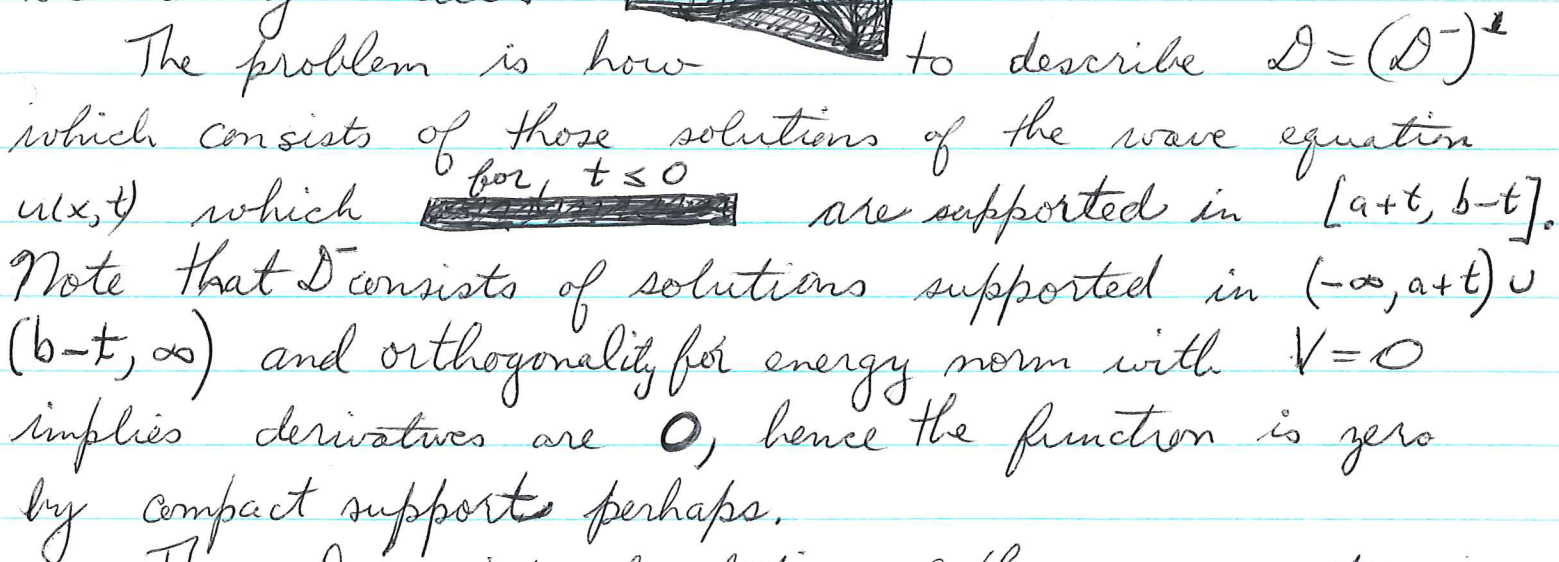 The problem is how to describe D = (D⁻)^⊥
which consists of those solutions of the wave equation
u(x,t) which for, t ≤ 0 are supported in [a+t, b-t].
Note that D⁻ consists of solutions supported in (-∞, a+t) ∪
(b-t, ∞) and orthogonality for energy norm with V = 0
implies derivatives are 0, hence the function is zero
by compact support perhaps.